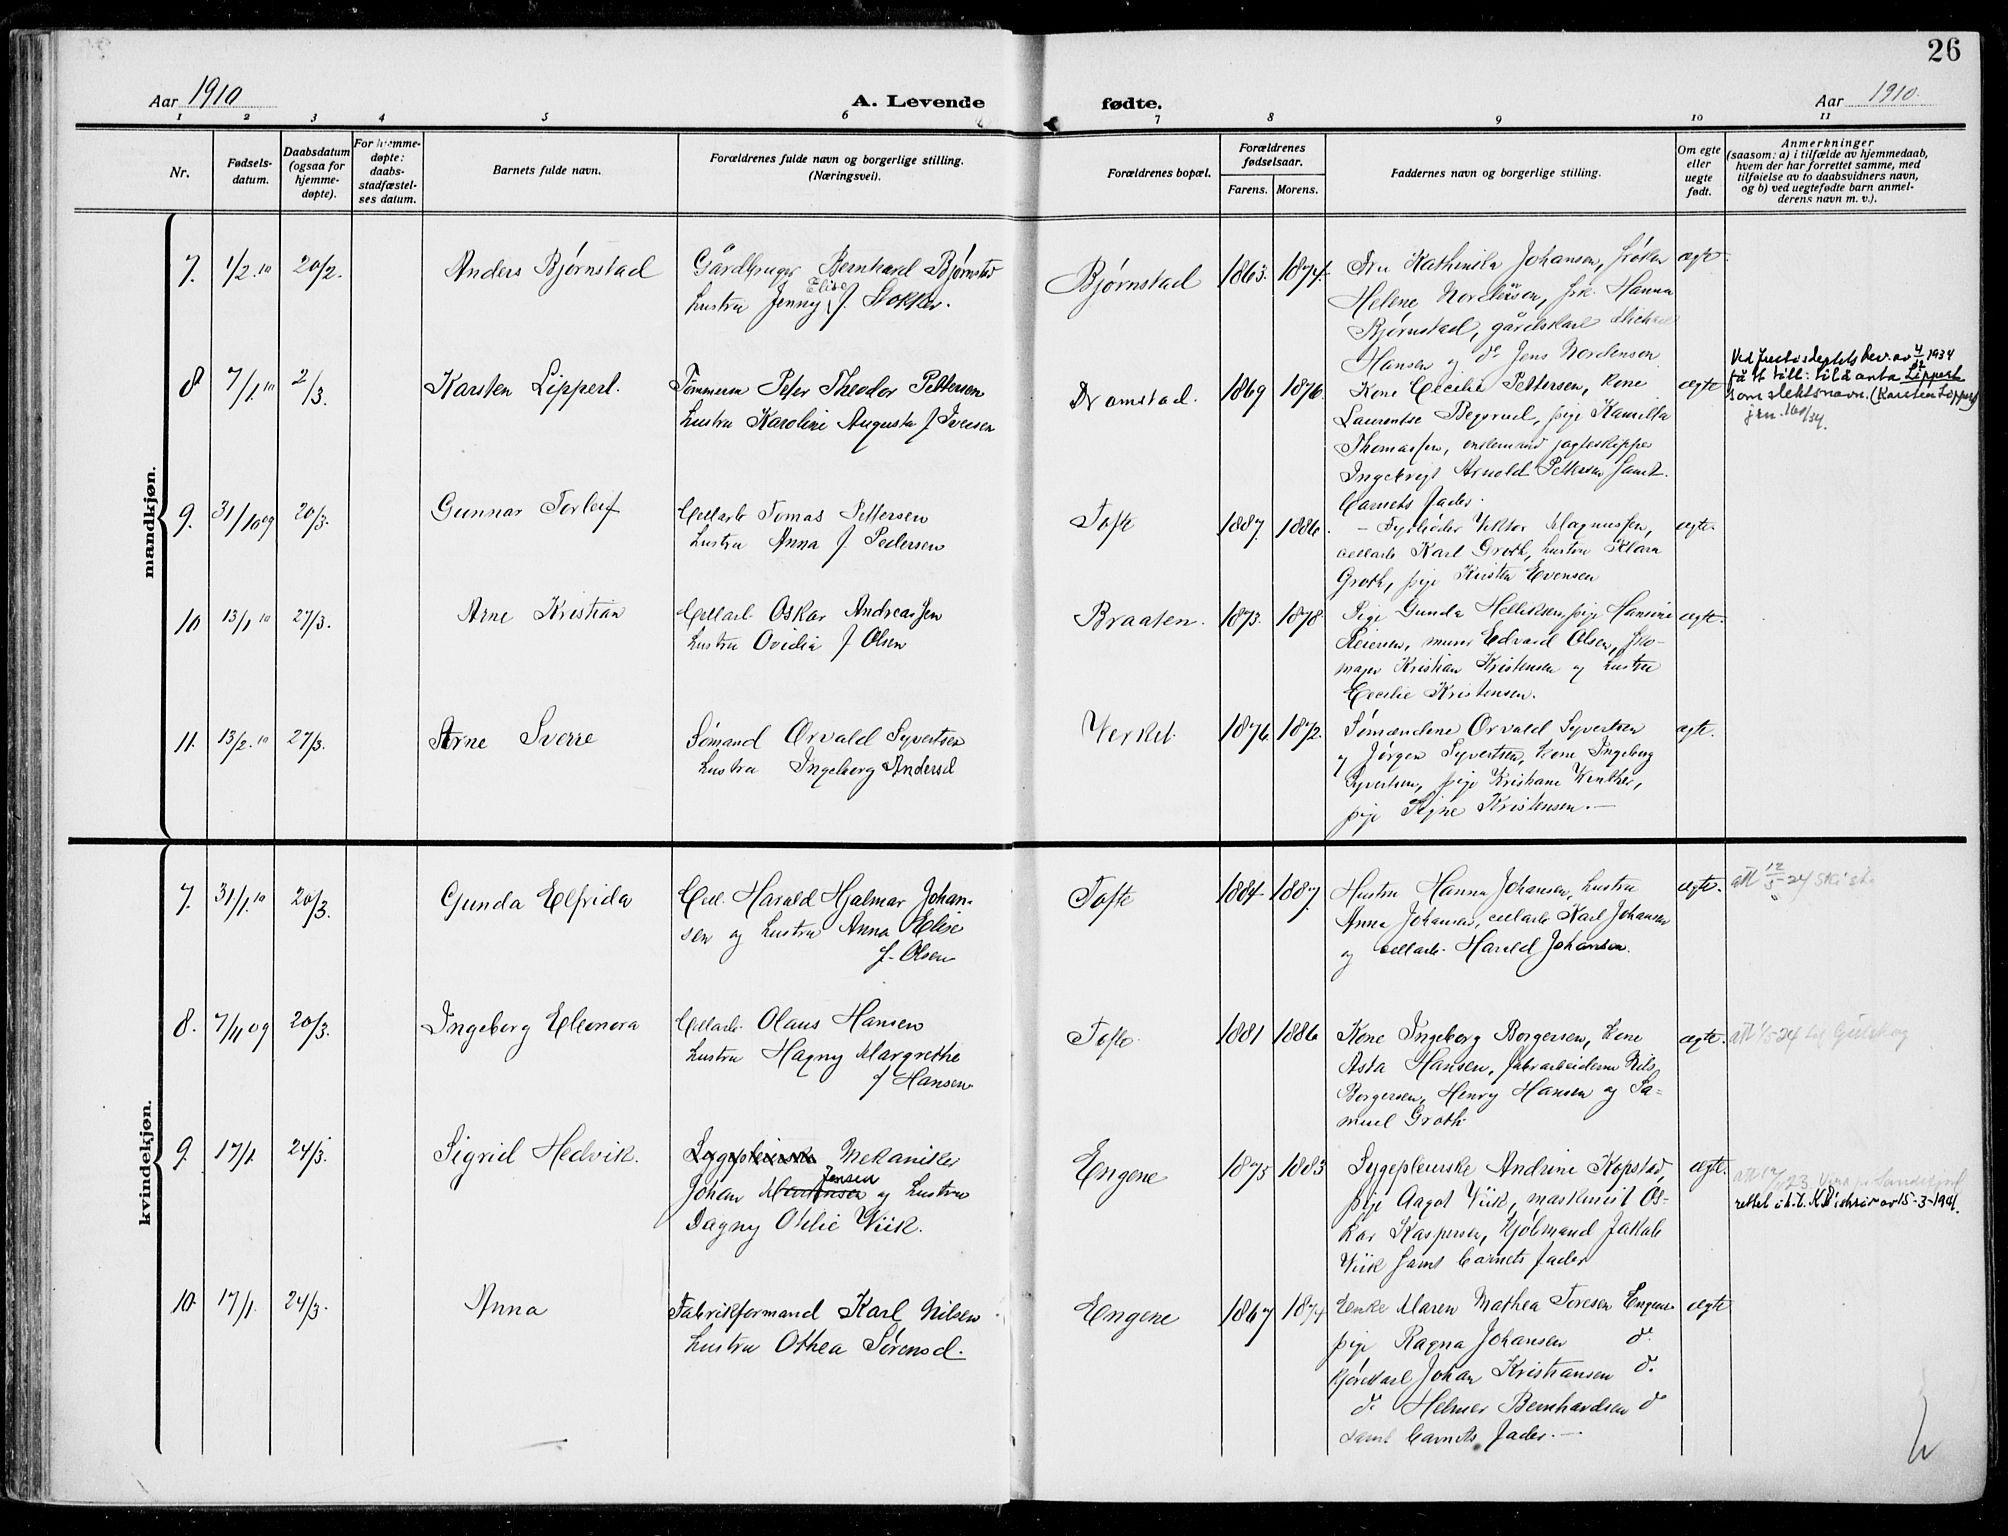 26
Aar 1910
A. Levende fødte.
Aar 1910.
1 2 3 4 5 6 7 8 9 10 11
Nr.
Fødsels-
datum.
Daabsdatum
(ogsaa for
hjemme-
døpte).
For hjemme-
døpte:
daabs-
stadfæstel-
ses datum.
Barnets fulde navn.
Forældrenes fulde navn og borgerlige stilling.
(Næringsvei).
Forældrenes bopæl.
Forældrenes
fødselsaar.
Farens. Morens.
Faddernes navn og borgerlige stilling.
Om egte
eller
uegte
født.
Anmerkninger
(saasom: a) i tilfælde av hjemmedaab,
hvem der har forrettet samme, med
tilføielse av to daabsvidners navn,
og b) ved uegtefødte barn anmel-
derens navn m. v.).
mandkjøn.
7. 1/2.10 20/2. Anders Bjørnstad
Gårdbruger Bernhard Bjørnstad
Elise
hustru Jenny f. Stokker.
Bjørnstad 1863. 1874.
Fru Kathinka Johansen, frøken
Helene Nordensen, frk. Hanna
Bjørnstad, gårdskarl Michael
Hansen og do Jens Nordensen
ægte
8 7/1.10 2/3. Karsten Lippert.
Tømmerm Peter Theodor Pettersen
hustru Karoline Augusta f Iversen
Dramstad. 1869 1876.
Kone Cecilie Pettersen, kone
Laurentse Begsrud, pige Kamilla
Thomassen, enkemand jagteskipper
Ingebregt Arnold Pettersen samt
barnets fader.
ægte
Ved Justisdeptets bev. av 4/12 1934
få tt till. til å anta Lippert
som slektsnavn. (Karsten Lippert)
jrn. 160/34.
9. 31/10 09 20/3. Gunnar Torleif
Cellarb Tomas Pettersen
hustru Anna f. Pedersen
Tofte 1887. 1886.
Fyrbøder Viktor Magnussen,
cellarb Karl Groth, hustru Klara
Groth, pige Kirsten Evensen
ægte.
10 13/1 10 27/3. Arne Kristian
Cellarb. Oskar Andreassen
hustru Ovidia f Olsen
Braaten. 1873. 1878.
Pige Gunda Helliksen, pige Hansine
Reiersen, murer Edvard Olsen, sko-
mager Kristian Kristensen og hustru
Cecilie Kristensen.
ægte.
11. 13/2.10 27/3. Arne Sverre
Sømand Orvald Syvertsen
hustru Ingeborg Andersd
Verket 1876. 1872.
Sømændene Orvald Syvertsen
og Jørgen Syvertsen, kone Ingeborg
Syvertsen, pige Kristiane Winther,
pige Signe Kristensen.
ægte.
kvindekjøn.
7. 31/1.10 20/3. Gunda Elfrida
Cell. Harald Hjalmar Johan-
sen og hustru Anna Elise
f. Olsen
Tofte 1884. 1887.
Hustru Hanna Johansen, hustru
Anna Johansen, cellarb Karl Johansen
og cellarb. Harald Johansen.
ægte.
att 12/5-24
8. 7/11 09 20/3. Ingeborg Eleonora
Cellarb. Olaus Hansen
hustru Hagny Margrethe
f Hansen
Tofte. 1881 1886
Kone Ingeborg Borgersen, kone
Asta Hansen, fabrarbeiderne Nils
Borgersen, Henry Hansen og Sa-
muel Groth.
ægte.
att 1/5-24 til Gulskog
9. 17/1. 24/3. Sigrid Hedvik.
Sygepleierske Mekaniker
Jensen
Johan Martinsen og hustru
Dagny Otilie Wiik.
Engene 1875 1883
Sygepleierske Andrine Kopstad,
pige Aagot Viik, maskinist Os-
kar Kaspersen, Hjulmand Jakob
Viik samt barnets fader
ægte
rettet i h.t. K.D's skriv av 15-3-1941.
10. 17/1. 24/3. Anna
Fabrikformand Karl Nilsen
hustru Othea Sørensd.
Engene 1867 1874
Enke Maren Mathea Toresen Engene
pige Ragna Johansen do.
kjørekarl Johan Kristiansen do.
do Helmer Bernhardsen do
samt barnets fader.
ægte